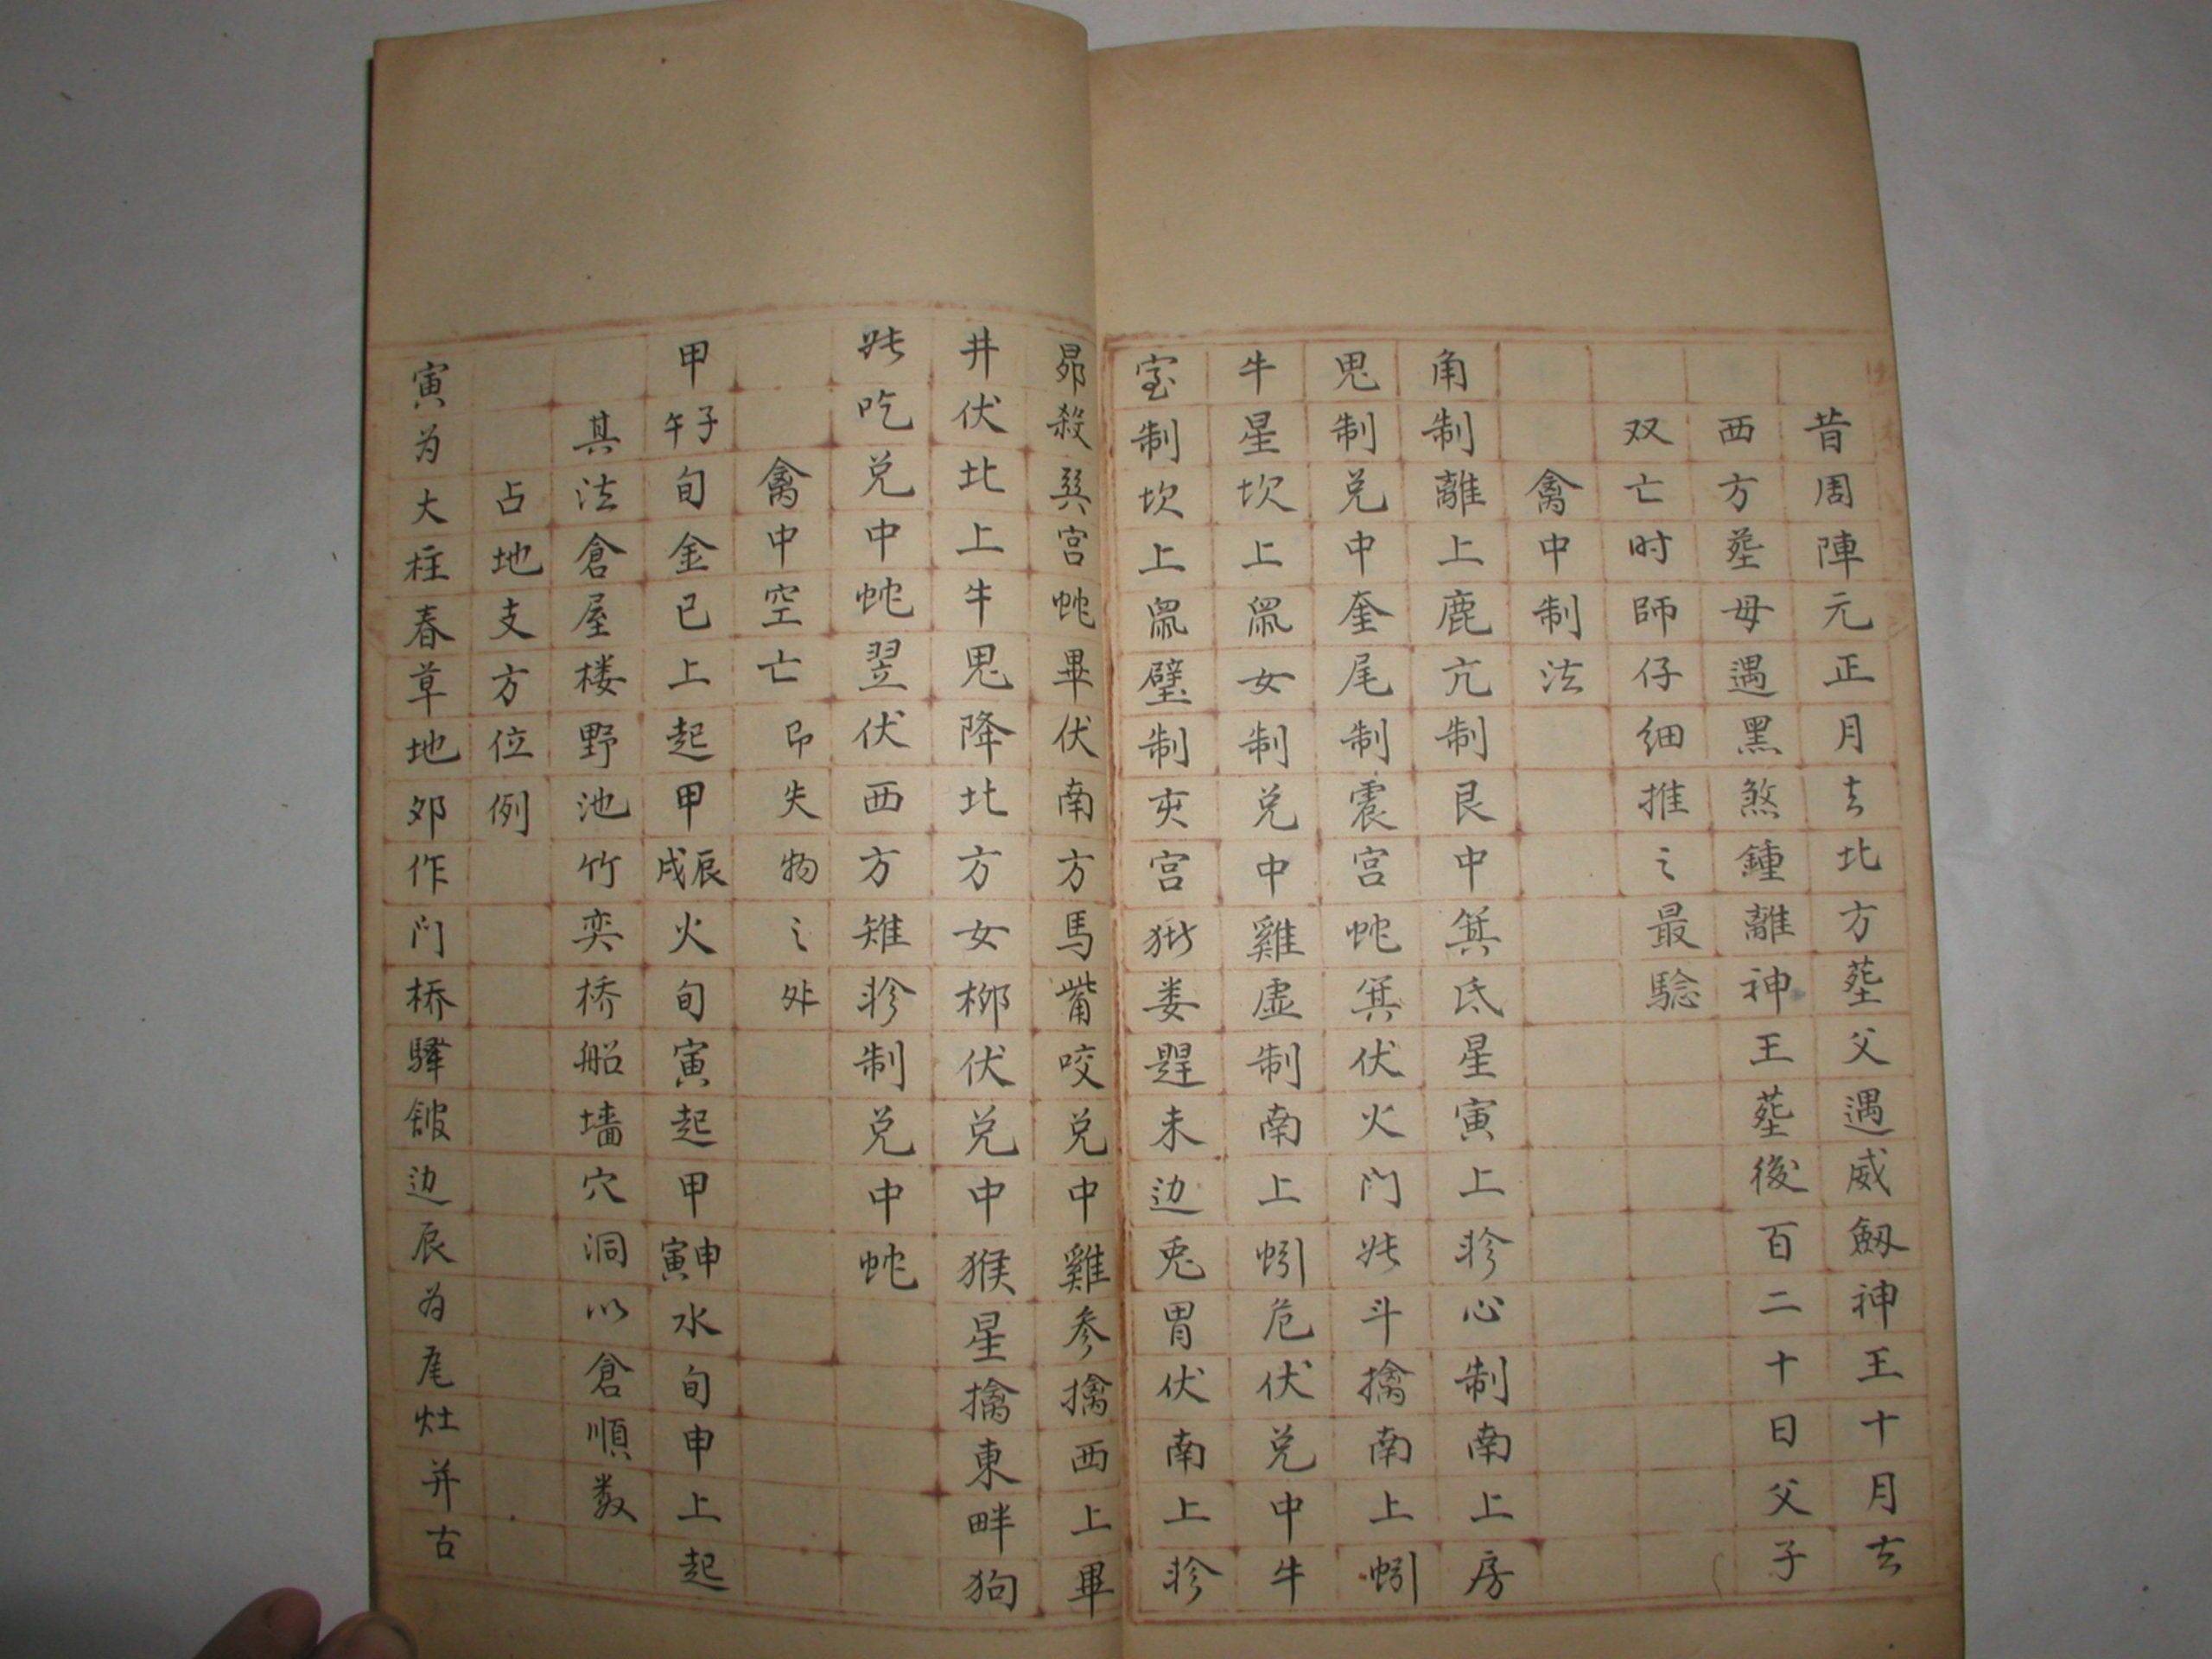 昔周陣元正月去北方塟父遇威劔神王十月去
西方塟母遇黑煞鍾離神王塟後百二十日父子
双亡时師仔细推之最騐
禽中制法
角制離上鹿亢制艮中箕氐星寅上軫心制南上房
鬼制兑中奎尾制震宫蛇箕伏火门斗擒南上蚓
牛星坎上鼠女制兑中雞虚制南上蚓危伏兑中牛
室制坎上鼠壁制亥宫娄未边兎胃伏南上軫
昴殺巽宫蛇畢伏南方馬觜咬兑中雞参擒西上畢
井伏北上牛鬼降北方女柳伏兑中猴星擒東畔狗
吃兑中蛇翌伏西方雉軫制兑中蛇
禽中空亡 即失物之外
甲午子旬金已上起甲戌辰火旬寅起甲寅申水旬申上起
其法倉屋楼野池竹奕桥船墙穴洞以倉順数
占地支方位例
寅为大柱春草地夘作门桥驛舘边辰为灶并古